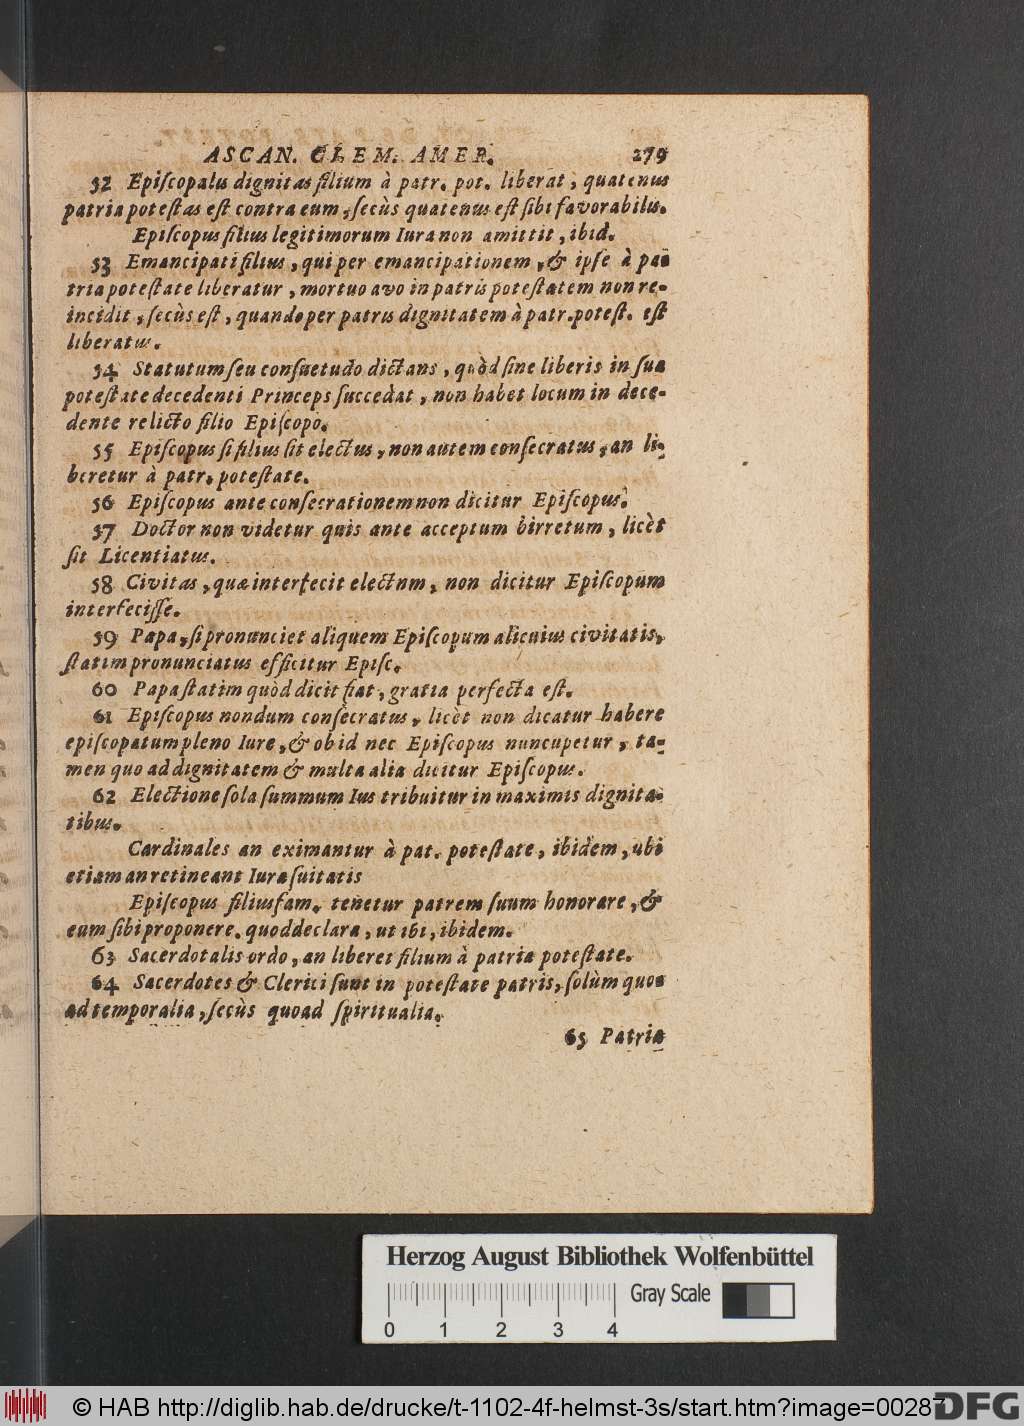 ASCAN. CLEM. AMER. 279
52 Episcopalis dignitas filium à patr. pot. liberat, quatenus
patria potestas est contra eum, secùs quatenus est sibi favorabilis.
Episcopus filius legitimorum Iura non amittit, ibid.
53 Emancipati filius, qui per emancipationem, & ipse à pa-
tria potestate liberatur, mortuo avo in patris potestatem non re-
incidit, secùs est, quando per patris dignitatem à patr. potest. est
liberatus.
54 Statutum seu consuetudo dictans, quòd sine liberis in sua
potestate decedenti Princeps succedat, non habet locum in dece-
dente relicto filio Episcopo.
55 Episcopus si filius sit electus, non autem consecratus, an li-
beretur à patr. potestate.
56 Episcopus ante consecrationem non dicitur Episcopus.
57 Doctor non videtur quis ante acceptum birretum, licèt
sit Licentiatus.
58 Civitas, quæ interfecit electum, non dicitur Episcopum
interfecisse.
59 Papa, si pronunciet aliquem Episcopum alicuius civitatis,
statim pronunciatus efficitur Episc.
60 Papa statim quòd dicit fiat, gratia perfecta est.
61 Episcopus nondum consecratus, licèt non dicatur habere
episcopatum pleno Iure, & ob id nec Episcopus nuncupetur, ta-
men quo ad dignitatem & multa alia dicitur Episcopus.
62 Electione sola summum Ius tribuitur in maximis dignita-
tibus.
Cardinales an eximantur à pat. potestate, ibidem, ubi
etiam an retineant Iura suitatis
Episcopus filiusfam. tenetur patrem suum honorare, &
eum sibi proponere. quod declara, ut ibi, ibidem.
63 Sacerdotalis ordo, an liberet filium à patria potestate.
64 Sacerdotes & Clerici sunt in potestate patris, solùm quoa
ad temporalia, secùs quoad spiritualia.
65 Patria
Herzog August Bibliothek Wolfenbüttel
Gray Scale
0 1 2 3 4
© HAB http://diglib.hab.de/drucke/t-1102-4f-helmst-3s/start.htm?image=00287
DFG